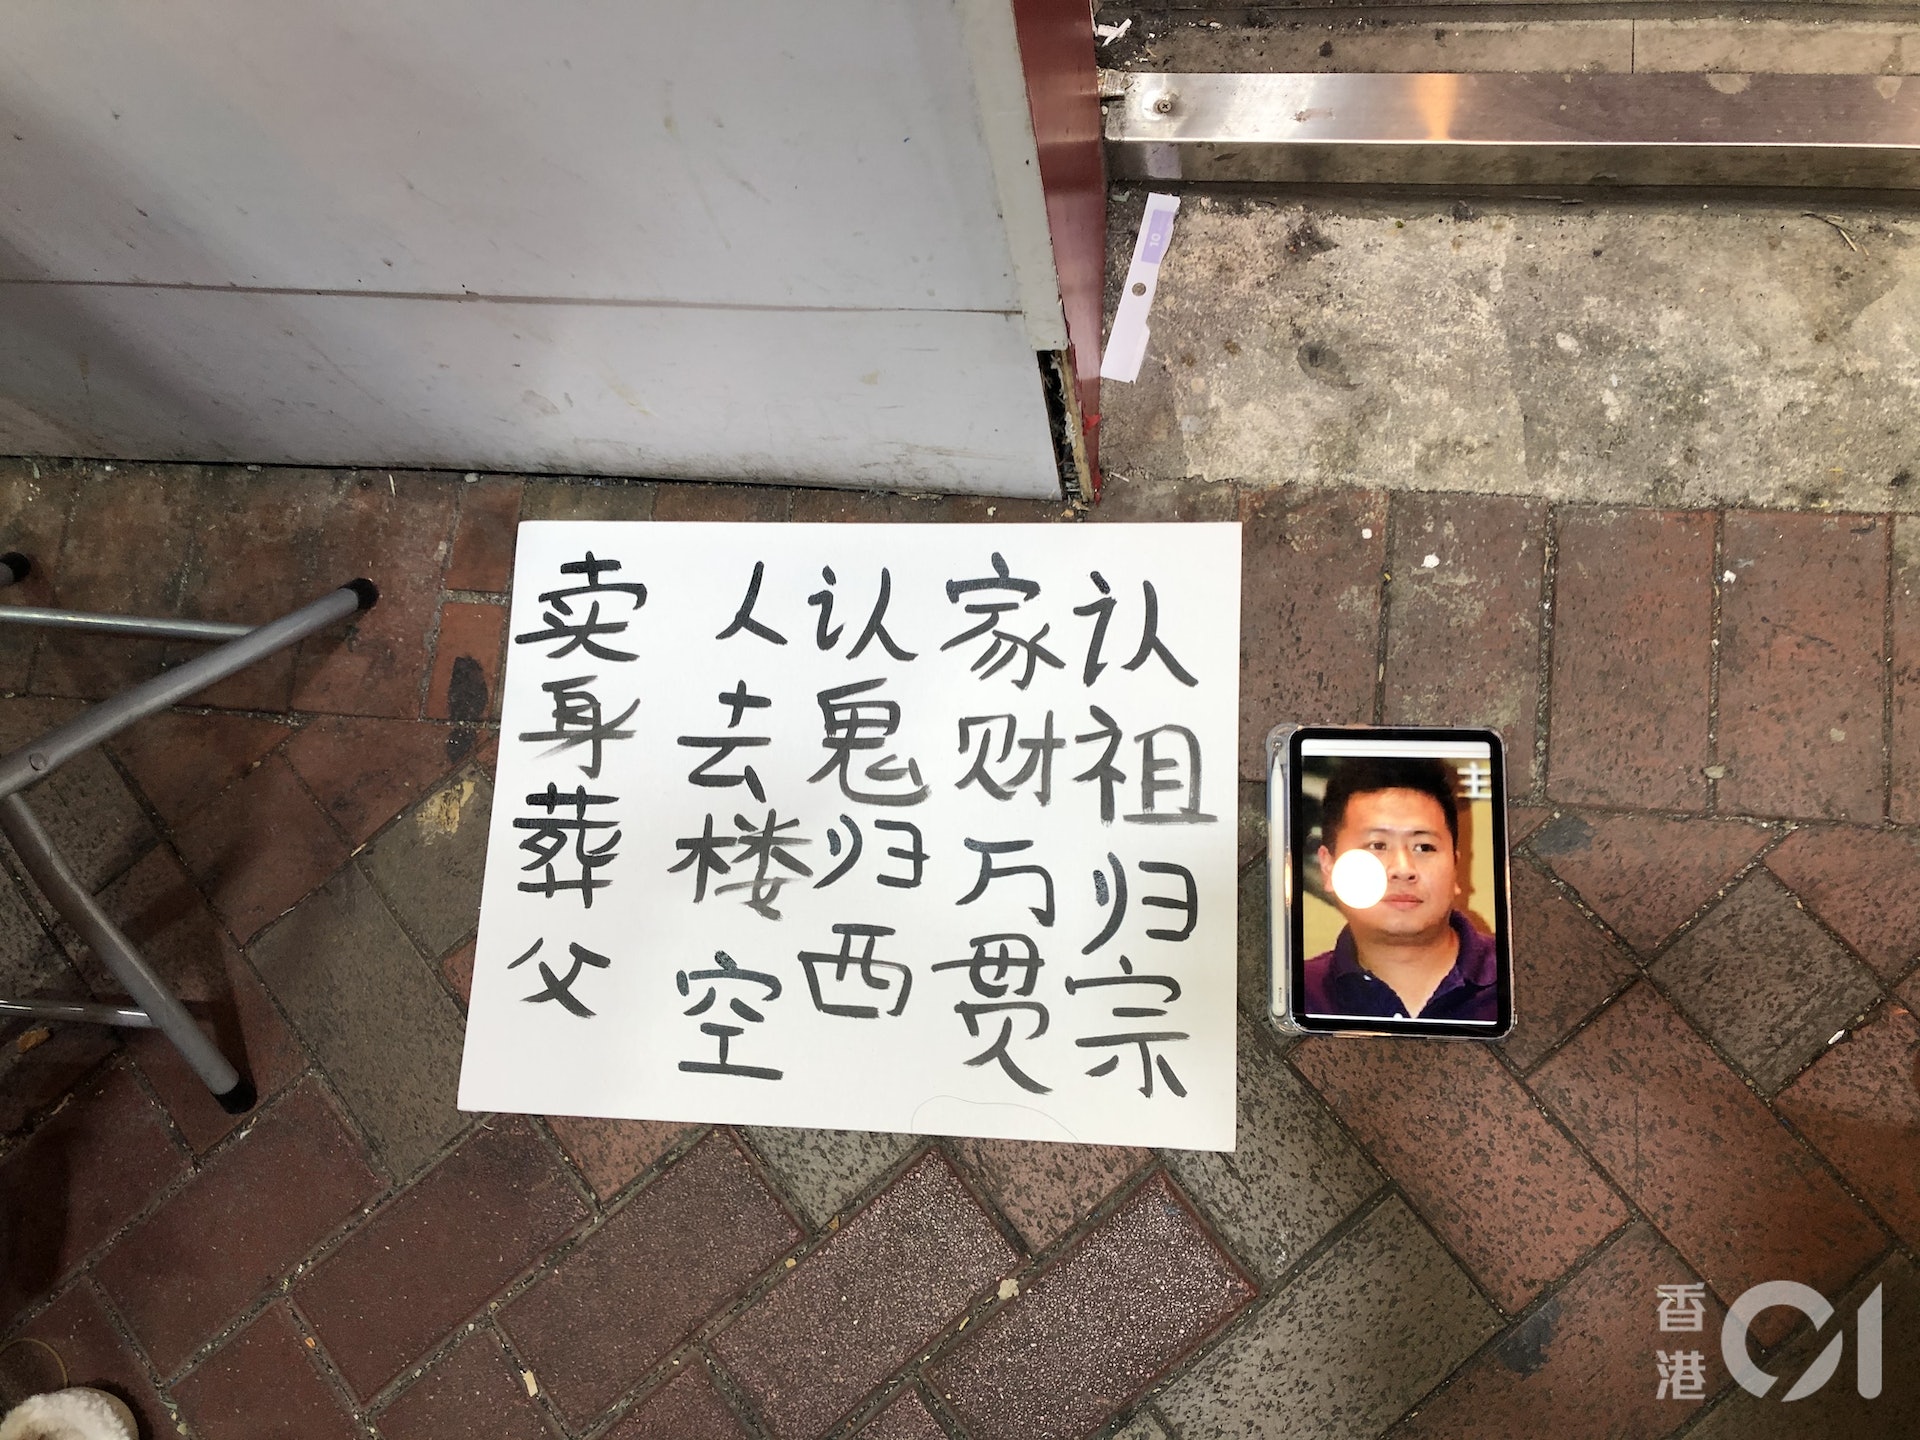 认祖归宗
家财万贯
认鬼归西
人去楼空
卖身葬父
主
10
香港01